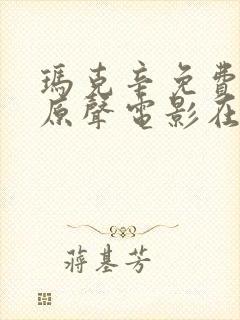 瑪克辛免費
原聲電影在
蔣基芳